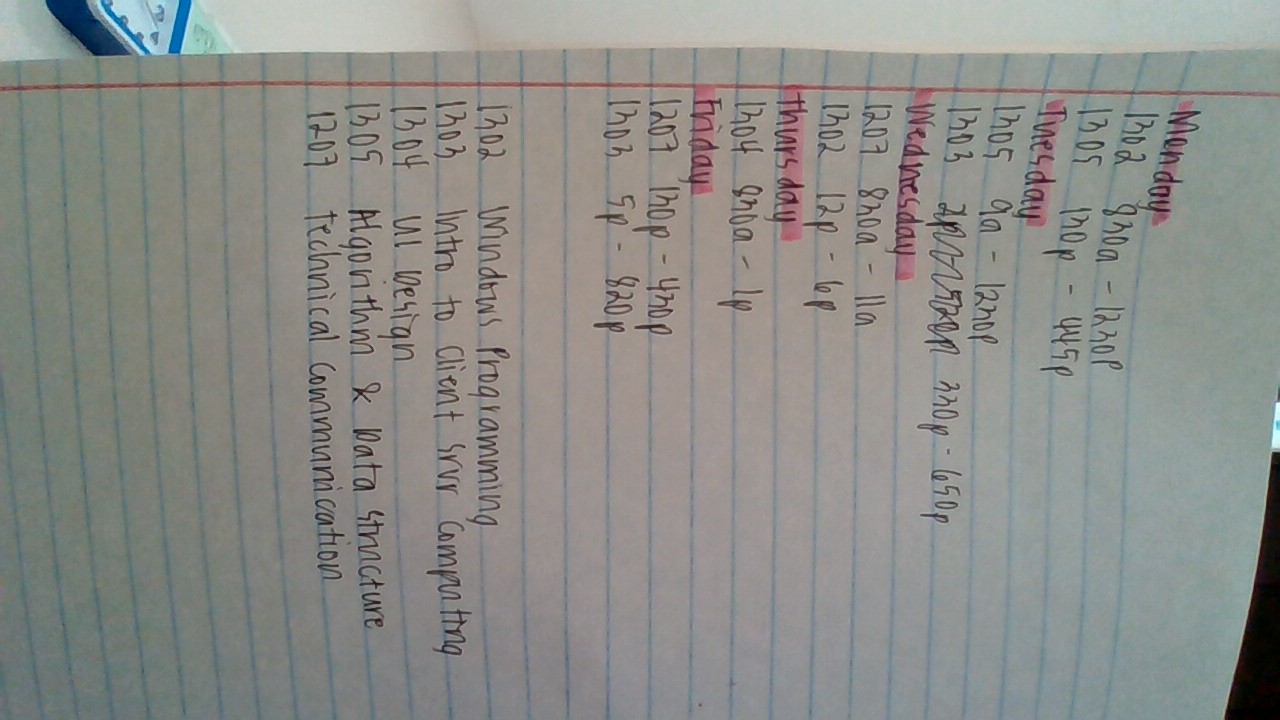 Monday
1302 830a - 1230p
1305 130p - 445p
Tuesday
1305 9a - 1230p
1303 330p - 650p
Wednesday
1207 830a - 11a
1302 12p - 6p
Thursday
1304 830a - 1p
Friday
1207 130p - 430p
1303 5p - 820p
1302 Windows Programming
1303 Intro to Client Srvr Computing
1304 UI Design
1305 Algorithm & Data Structure
1207 Technical Communication